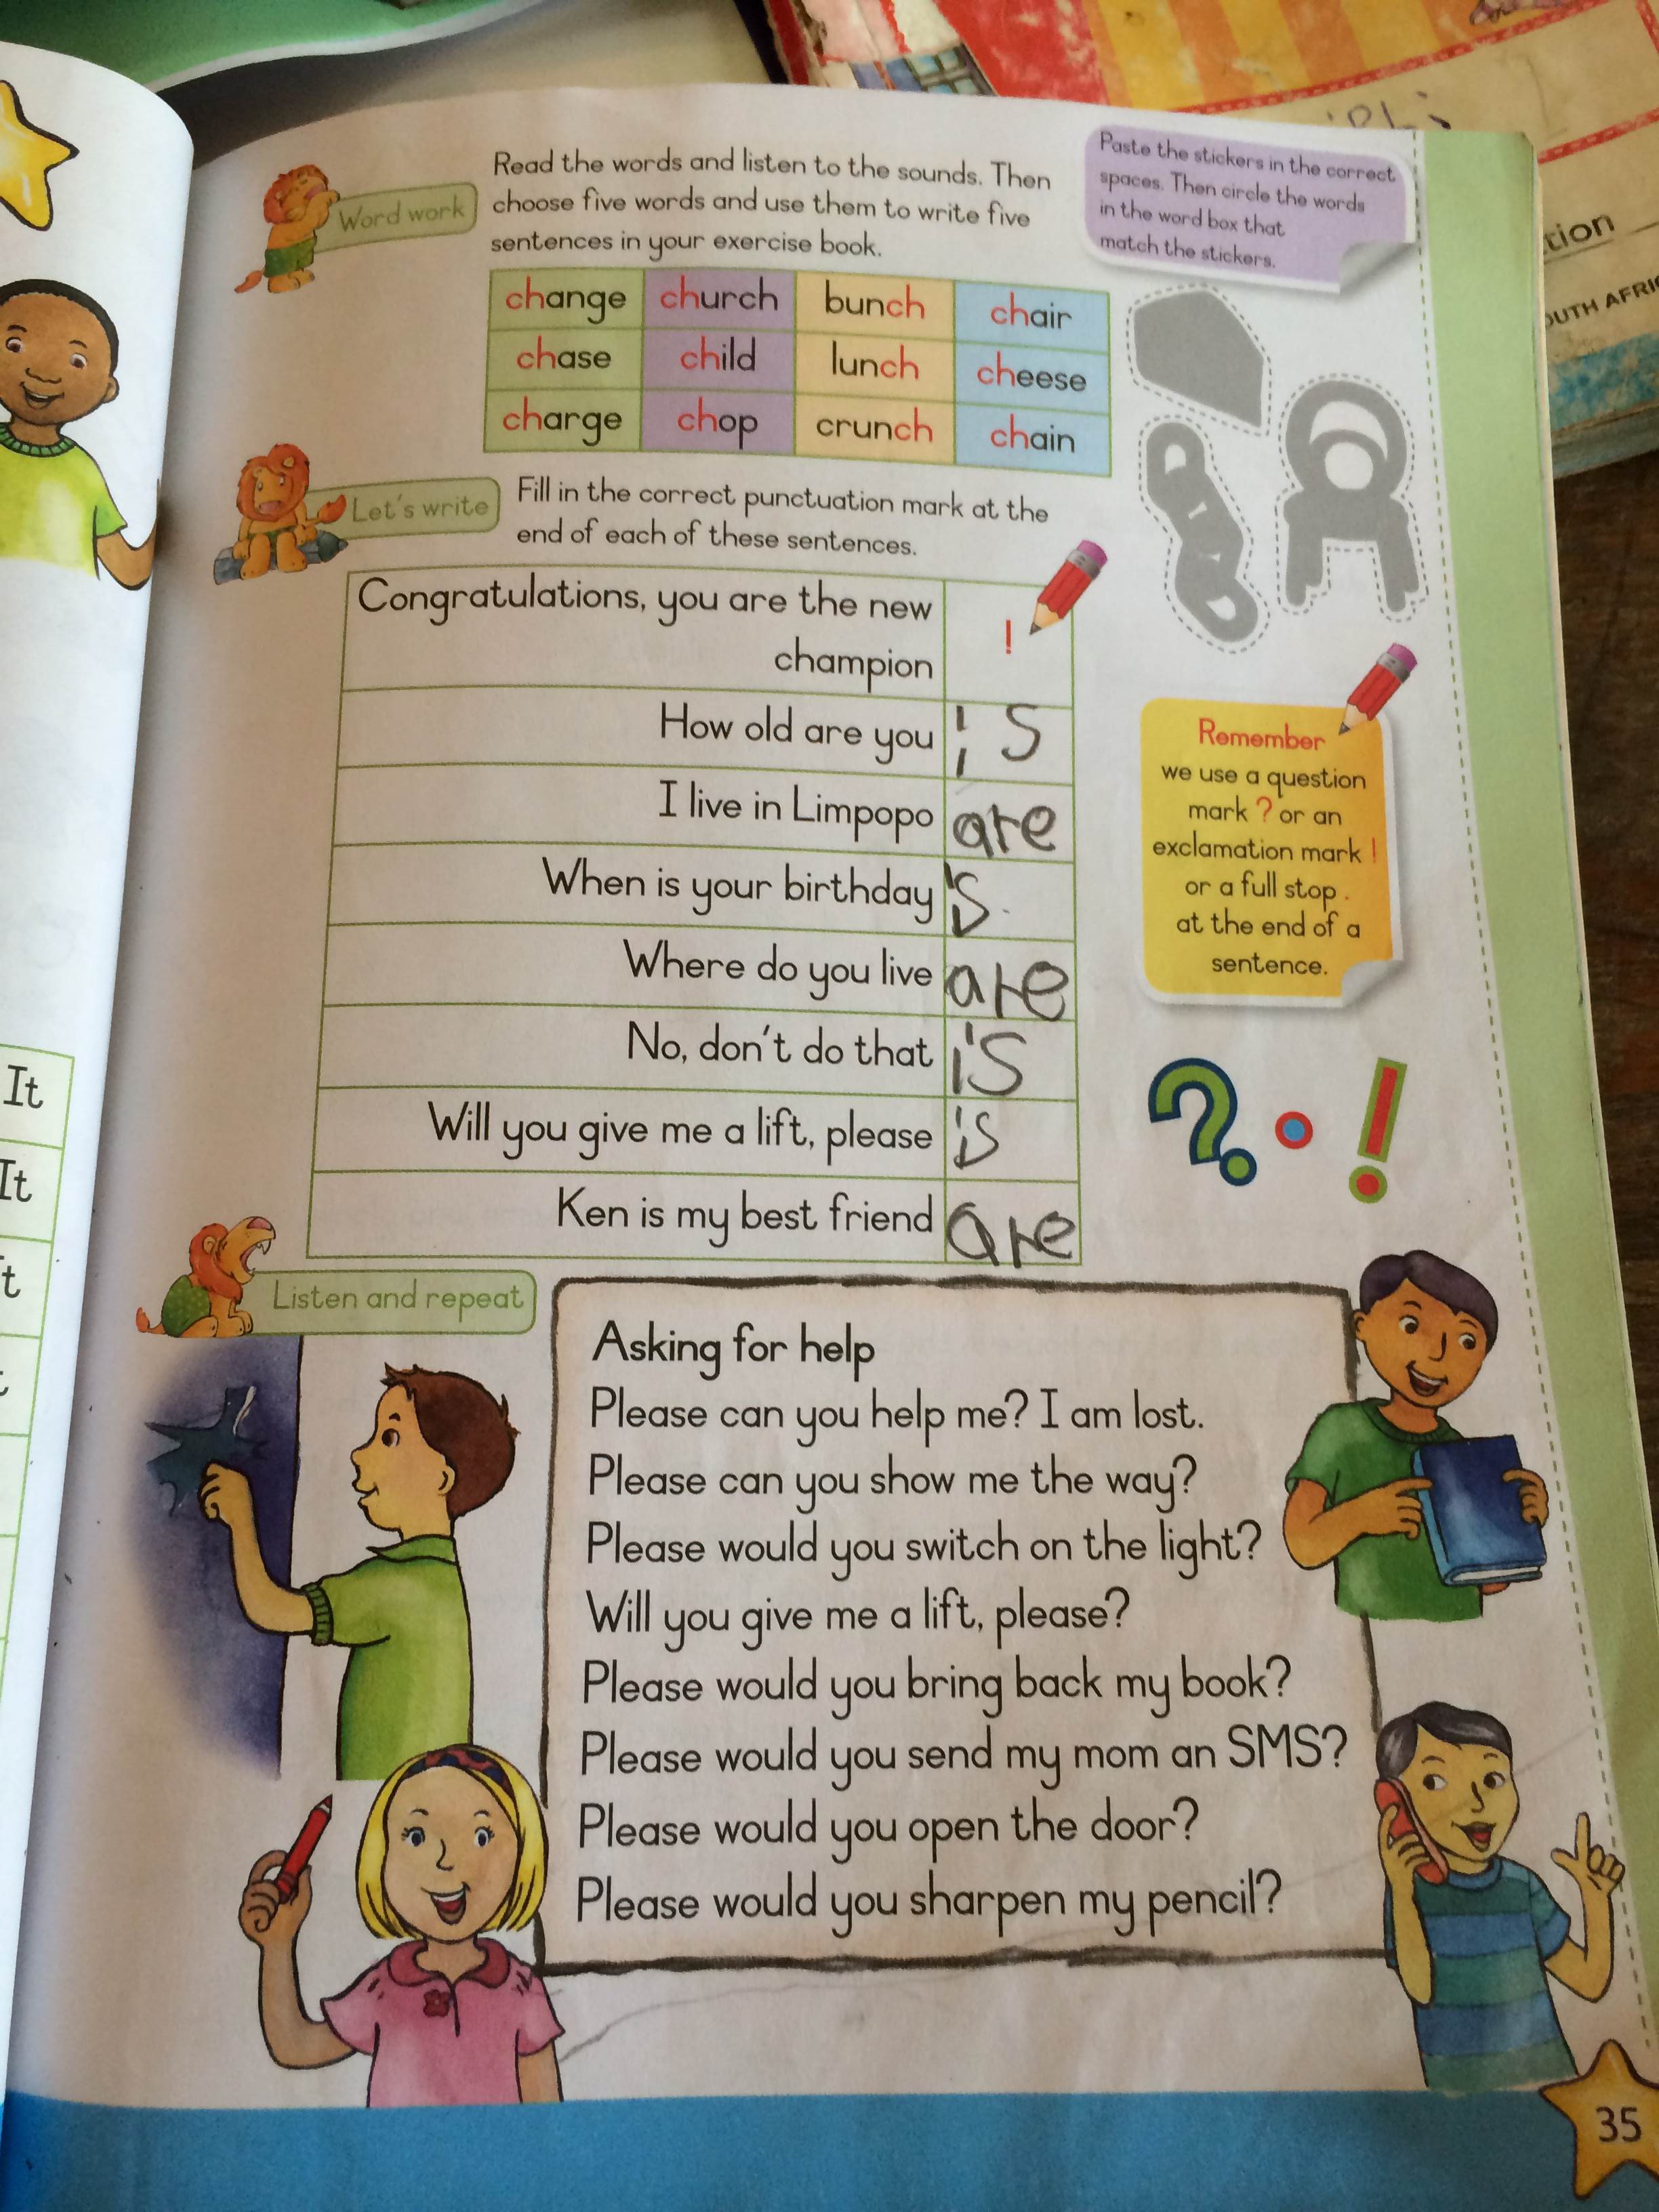 Word work
Read the words and listen to the sounds. Then
choose five words and use them to write five
sentences in your exercise book.
Paste the stickers in the correct
spaces. Then circle the words
in the word box that
match the stickers.
change church bunch chair
chase child lunch cheese
charge chop crunch chain
Let's write
Fill in the correct punctuation mark at the
end of each of these sentences.
Congratulations, you are the new
champion !
How old are you is
I live in Limpopo are
When is your birthday is
Where do you live are
No, don't do that is
Will you give me a lift, please is
Ken is my best friend are
Remember
we use a question
mark ? or an
exclamation mark !
or a full stop .
at the end of a
sentence.
? . !
Listen and repeat
Asking for help
Please can you help me? I am lost.
Please can you show me the way?
Please would you switch on the light?
Will you give me a lift, please?
Please would you bring back my book?
Please would you send my mom an SMS?
Please would you open the door?
Please would you sharpen my pencil?
35
It
It